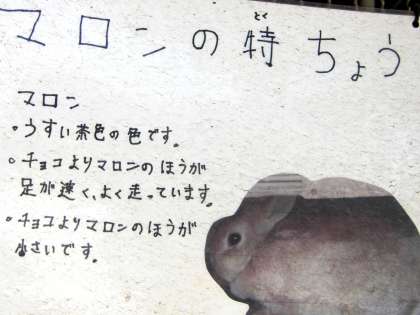 マロンの特ちょう
とく
マロン
。うすい茶色の色です。
。チョコよりマロンのほうが
足が速く、よく走っています。
。チョコよりマロンのほうが
小さいです。